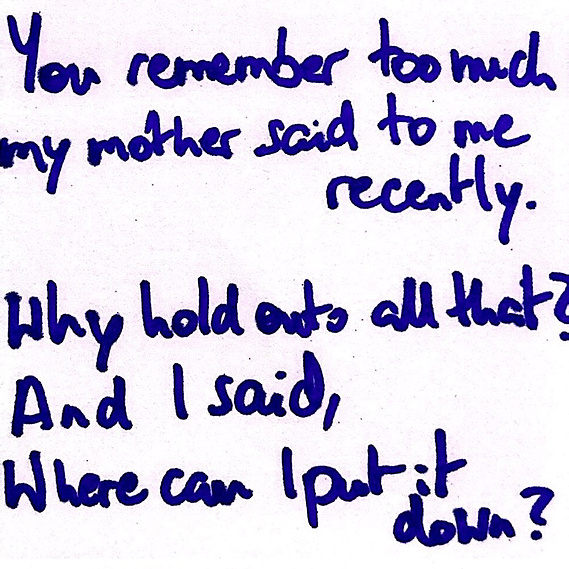 You remember too much
my mother said to me
recently.
Why hold onto all that?
And I said,
Where can I put it
down?